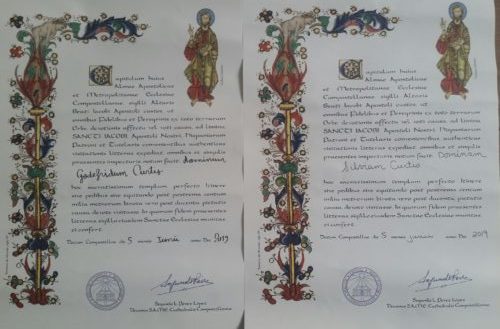 Capitulum huius
Almae Apostolicae
et Metropolitanae Ecclesiae
Compostellanae sigilli Altaris
Beati Iacobi Apostoli custos ut
omnibus Fidelibus et Peregrinis ex toto terrarum
Orbe, devotionis affectu vel voti causa, ad limina
SANCTI IACOBI, Apostoli Nostri, Hispaniarum
Patroni et Tutelaris convenientibus, authenticas
visitationis litteras expediat, omnibus et singulis
praesentes inspecturis, notum facit:
Curtis
hoc sacratissimum templum, perfecto itinere
sive pedibus sive equitando post postrema centum
milia metrorum, birota vero post ducenta, pietatis
causa, devote visitasse. In quorum fidem praesentes
litteras, sigillo eiusdem Sanctae Ecclesiae munitas,
ei confero.
Datum Compostellae die 5 mensis anno Dni 2019
Segundo L. Pérez López
Decanus S.A.M.E. Cathedralis Compostellanae
Capitulum huius
Almae Apostolicae
et Metropolitanae Ecclesiae
Compostellanae sigilli Altaris
Beati Iacobi Apostoli custos ut
omnibus Fidelibus et Peregrinis ex toto terrarum
Orbe, devotionis affectu vel voti causa, ad limina
SANCTI IACOBI, Apostoli Nostri, Hispaniarum
Patroni et Tutelaris convenientibus, authenticas
visitationis litteras expediat, omnibus et singulis
praesentes inspecturis, notum facit: Dominam
Curtis
hoc sacratissimum templum, perfecto itinere
sive pedibus sive equitando post postrema centum
milia metrorum, birota vero post ducenta, pietatis
causa, devote visitasse. In quorum fidem praesentes
litteras, sigillo eiusdem Sanctae Ecclesiae munitas,
ei confero.
Datum Compostellae die 5 mensis anno Dni 2019
Segundo L. Pérez López
Decanus S.A.M.E. Cathedralis Compostellanae